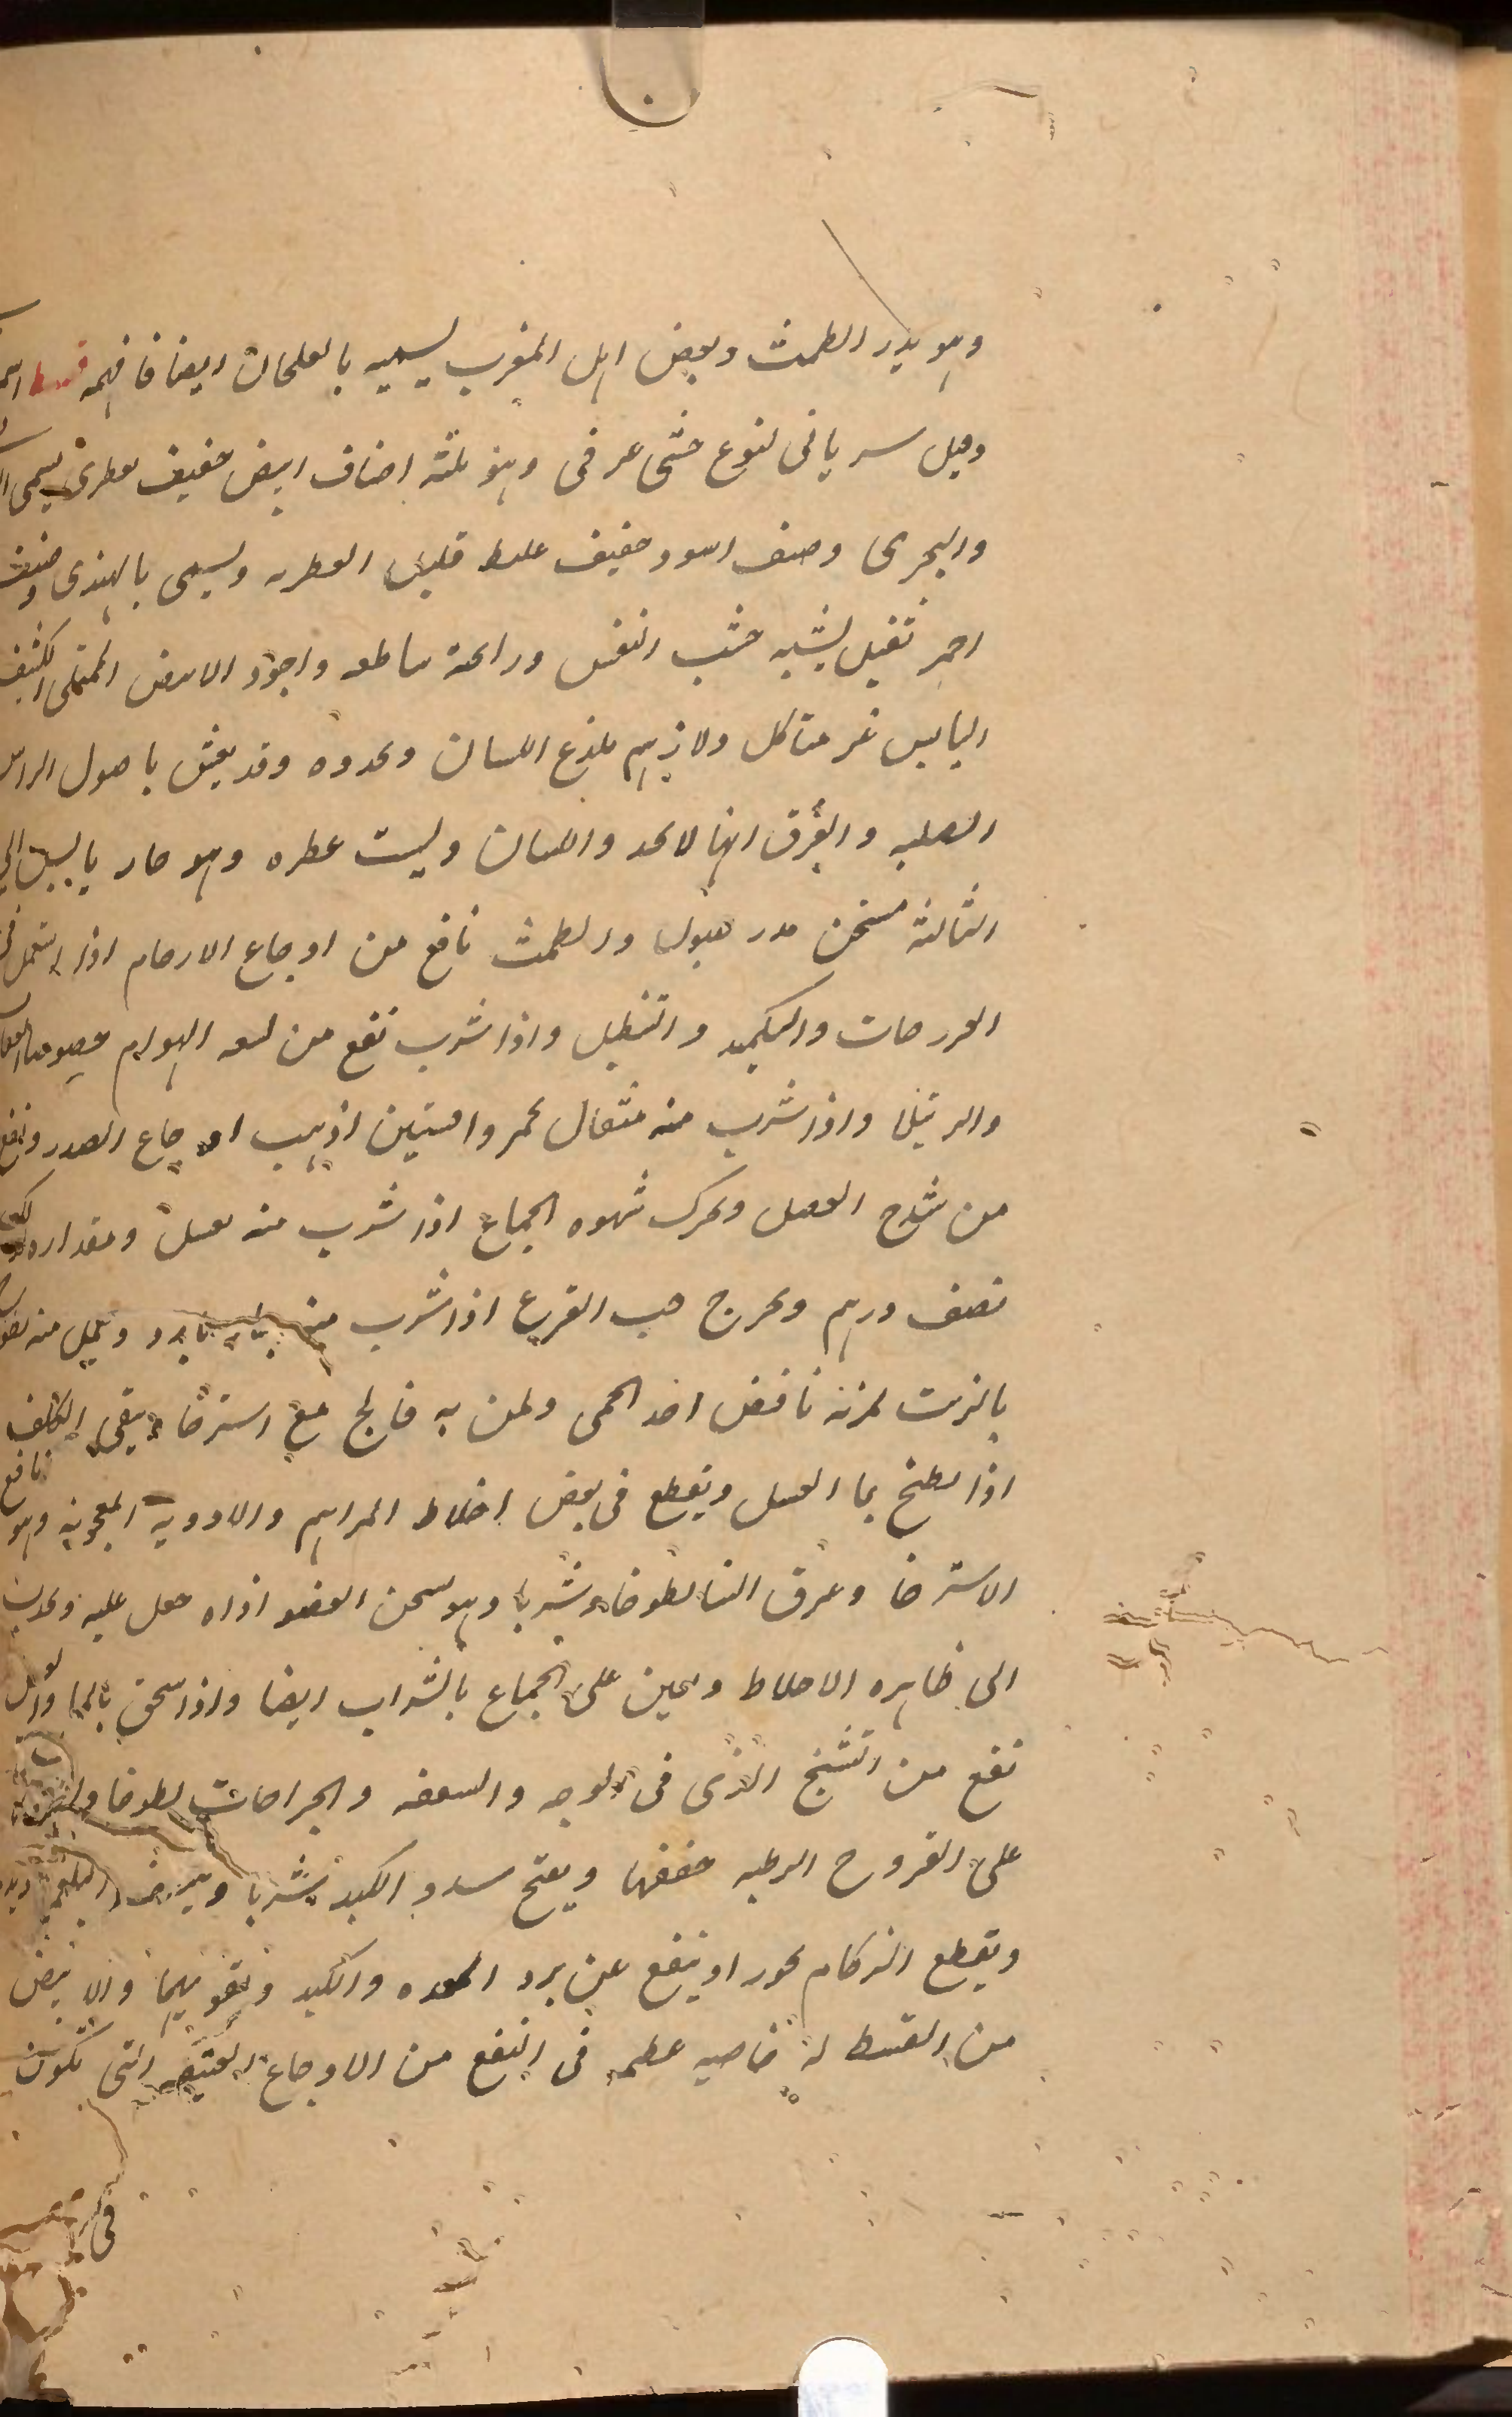 وهو يدر الطمث وبعض اهل المغرب يسميه بالعلحان ايضا فافهمه قسط
وقيل سرياني لنوع خشى عرقى وهو ثلثة اصناف ابيض خفيف عطرى يسمى
والبحرى وصنف اسود خفيف غليظ قليل العطريه ويسمى بالهندى وصنف
احمر ثقيل يشبه خشب البقس ورائحة ساطعه واجود الابيض الممتلى الكثيف
اليابس غير متاكل ولا زهم يلذع اللسان ويحدوه وقد يغش باصول الراسن
الصلبه والفرق انها لا تحد واللسان وليست عطره وهو حار يابس الى
الثالثة مسخن مدر للبول والطمث نافع من اوجاع الارحام اذا استعمل فى
الفرزجات والتكميد والتنطيل واذا شرب نفع من لسعه الهوام خصوصا
والرتيلا واذا شرب منه مثقال بخمر وافسنتين اذهب اوجاع الصدر ونفع
من شدخ العضل ويحرك شهوه الجماع اذا شرب منه بعسل ومقداره
نصف درهم ويخرج حب القرع اذا شرب منه بما بارد ويعمل منه لطوخ
بالزيت لمن به نافض اخذ الحمى ولمن به فالج مع استرخا وينقى الكلف
اذا لطخ بما العسل ويقطع فى بعض اخلاط المراهم والادويه المعجونه وهو نافع
الاسترخا وعرق النسا لطوخا وشربا وهو يسخن العضو اذاه جعل عليه ويجذب
الى ظاهره الاخلاط ويعين على الجماع بالشراب ايضا واذا سحق بالما والعسل
نفع من التشنج الذى فى الوجه والسعفه والجراحات لطوخا
على القروح الرطبه جففها ويفتح سدد الكبد شربا البلغم
ويقطع الزكام بخورا وينفع عن برد المعده والكبد وتقويهما والابيض
من القسط له خاصيه عظيمه فى النفع من الاوجاع العتيقه التى تكون
فى